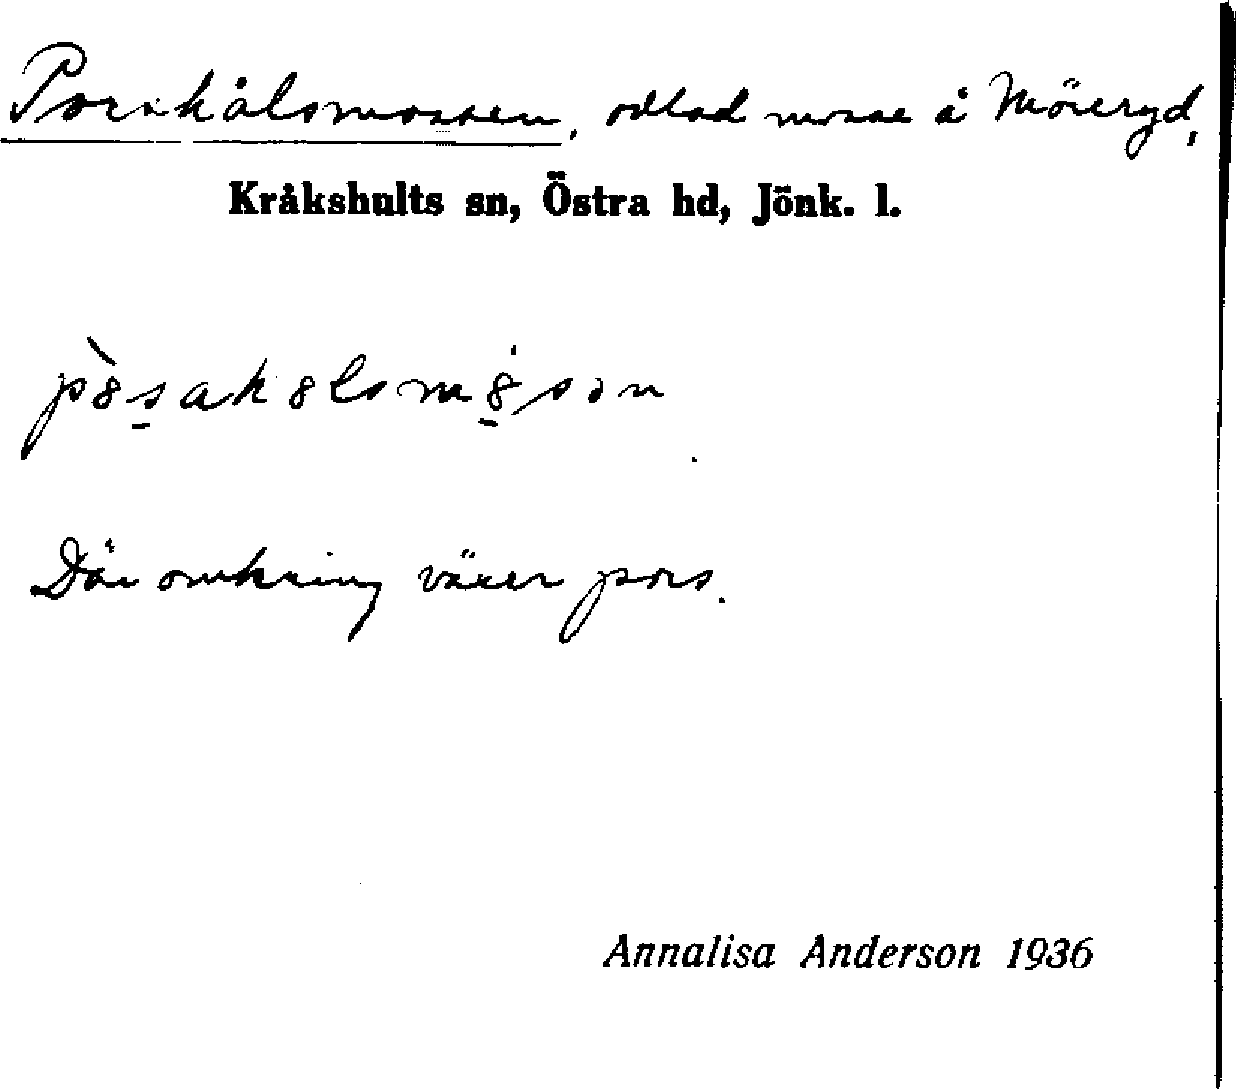 Porskålsmossen, odlad mosse å Möreryd,
Kråkshults sn, Östra hd, Jönk. l.
Där omkring växer pors.
Annalisa Anderson 1936